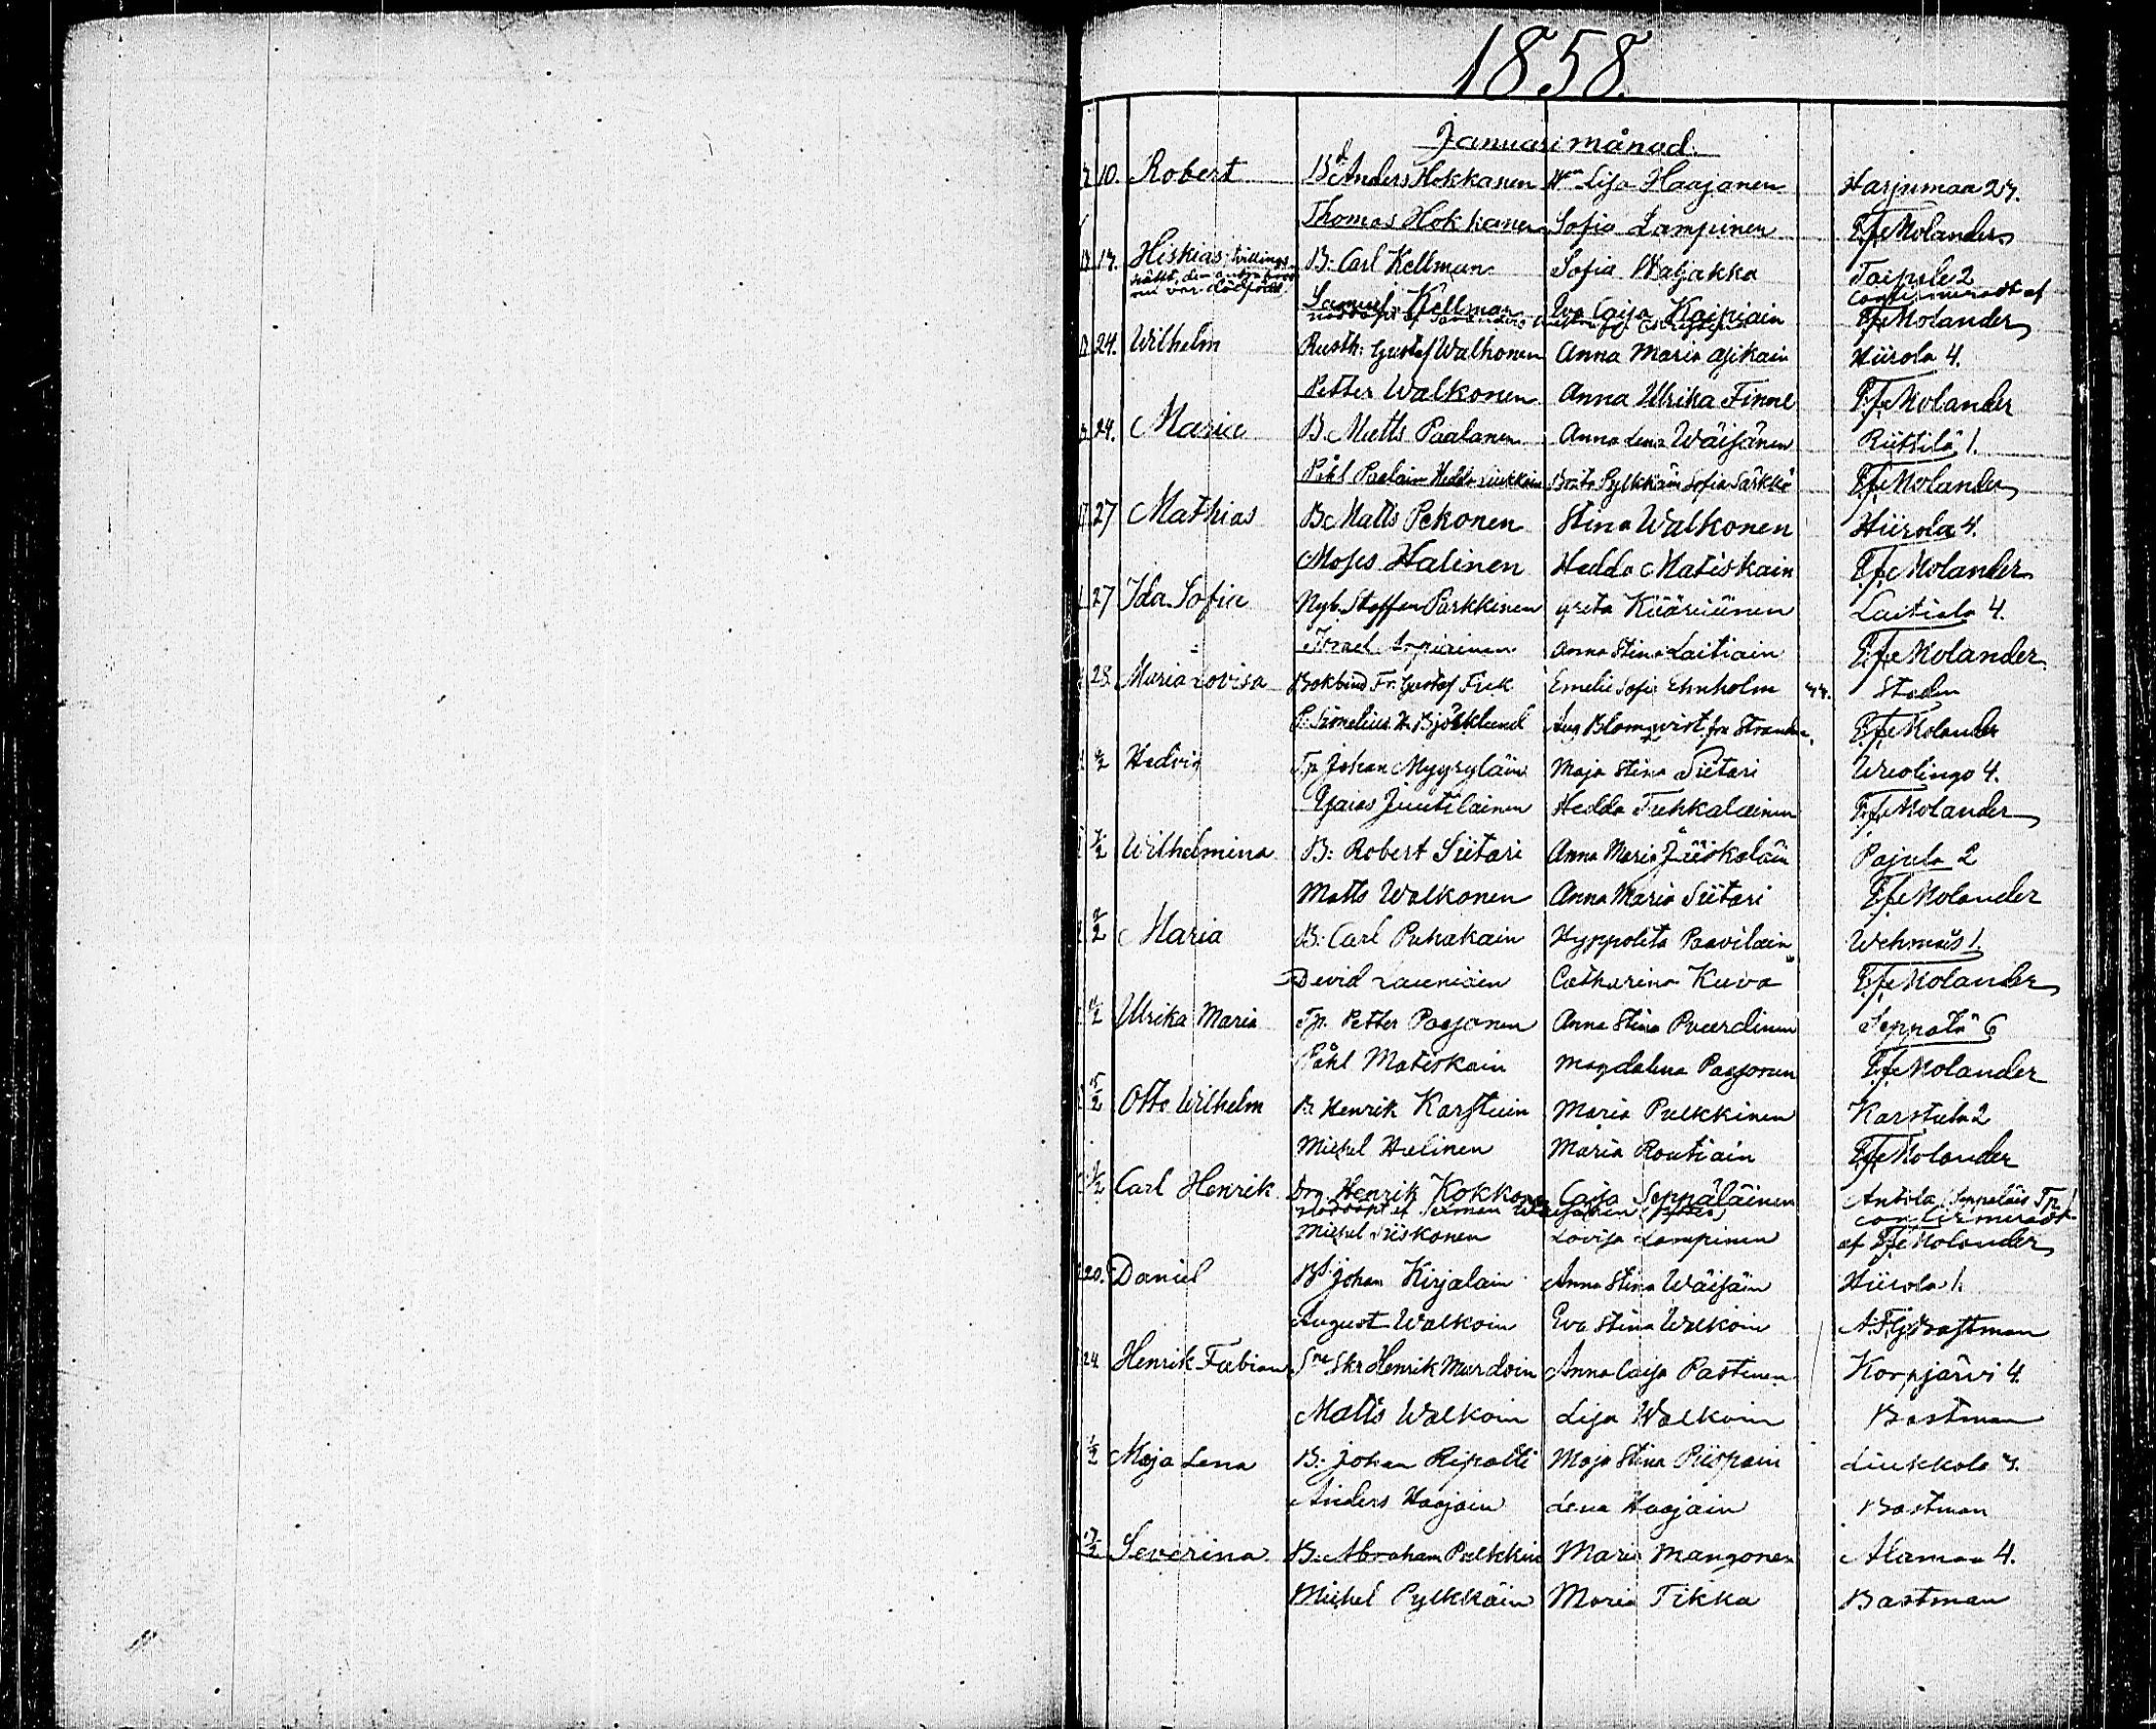 1858.
Januari månad.
10. Robert Bd Anders Hokkanen Hn Lisa Haajanen Harjumaa 27.
Thomas Hokkanen Sofia Lampinen E.f.e Molander
17. Hiskias, tvillings B. Carl Kellman Sofia Waljakka Taipale 2
var dödfödd. confirmeradt af
Samuel Kellman Eva Caisa Kaipiain E.f.e Molander
nöddöpt af
24. Wilhelm Rusth: Gustaf Walkonen Anna Maria Asikain Hiirola 4.
Petter Walkonen Anna Ulrika Finne E.f.e Molander
24. Maria B. Matts Paalanen Anna Lena Wäisänen Riittilä 1.
Påhl Paalain Hedda Liukkoin Beata Pylkkäin Sofia Särkkä E.f.e Molander
27 Mathias B. Matts Pekonen Stina Walkonen Hiirola 4.
Moses Halinen Hedda Matiskain E.f.e Molander
27 Ida Sofia Nyb. Staffan Parkkinen Greta Kääriäinen Laitiala 4.
Israel Anna Stina Laitiain E.f.e Molander
28. Maria Lovisa Bokbind Fr. Gustaf Fisk Emelie Sofia Ehnholm Staden
Simelius Björklund Aug Blomqvist E.f.e Molander
Hedvig Tp Johan Myyryläin Maja Stina Siitari 4.
Esaias Juutilainen Hedda Tuhkalainen E.f.e Molander
Wilhelmina B: Robert Siitari Anna Maria Jääskeläin Pajula 2
Matts Walkonen Anna Maria Siitari E.f.e Molander
Maria B: Carl Puhakain Hyppolita Paavilain Wehmais 1.
David Launiain Catharina Kuva E.f.e Molander
Ulrika Maria Tp. Petter Paajanen Anna Stina Seppälä 6
Påhl Matiskain Magdalena Paajonen E.f.e Molander
15/2 Otto Wilhelm B. Henrik Karstuin Maria Pulkkinen Karstula 2
Michel Halinen Maria Routiain E.f.e Molander
Carl Henrik Dr. Henrik Kokkonen Caisa Seppäläinen Anttila
nöddöpt af confirmeradt
Michel Siiskonen Lovisa Lampinen af E.f.e Molander
20. Daniel Bd. Johan Kirjalain Anna Stina Wäisäin Hiirola 1.
August Walkoin Eva Stina Walkoin A.F.G Bastman
24 Henrik Fabian Skr Henrik Murdoin Anna Caisa Pastinen Korpijärvi 4.
Matts Walkoin Lisa Walkoin Bastman
Maja Lena B. Johan Ripatti Maja Stina Piispain Liukkola 7.
Anders Haajain Lena Haajain Bastman
Severina B. Abraham Pulkkin Maria Mangonen Alamaa 4.
Michel Pylkkäin Maria Tikka Bastman